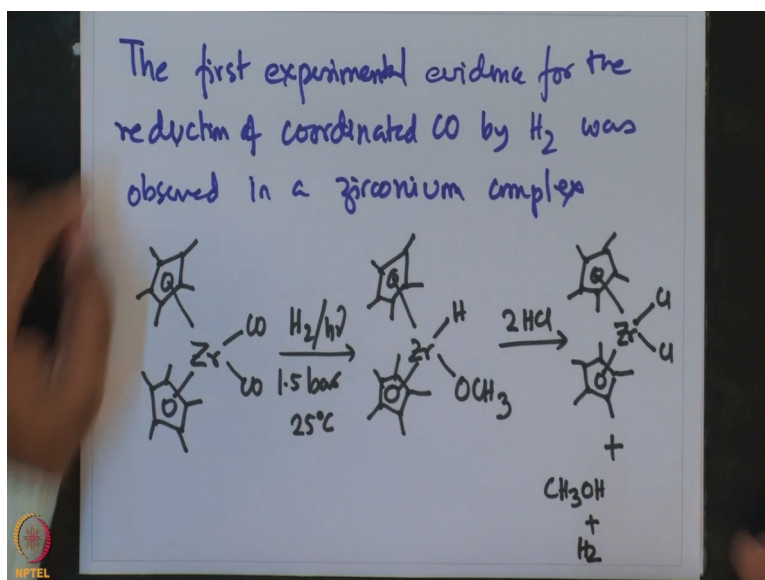 The first experimental evidence for the
reduction of coordinated CO by H2 was
observed in a zirconium complex
Zr CO CO
H2/hν
1.5 bar
25°C
Zr H OCH3
2HCl
Zr Cl Cl
+
CH3OH
+
H2
NPTEL